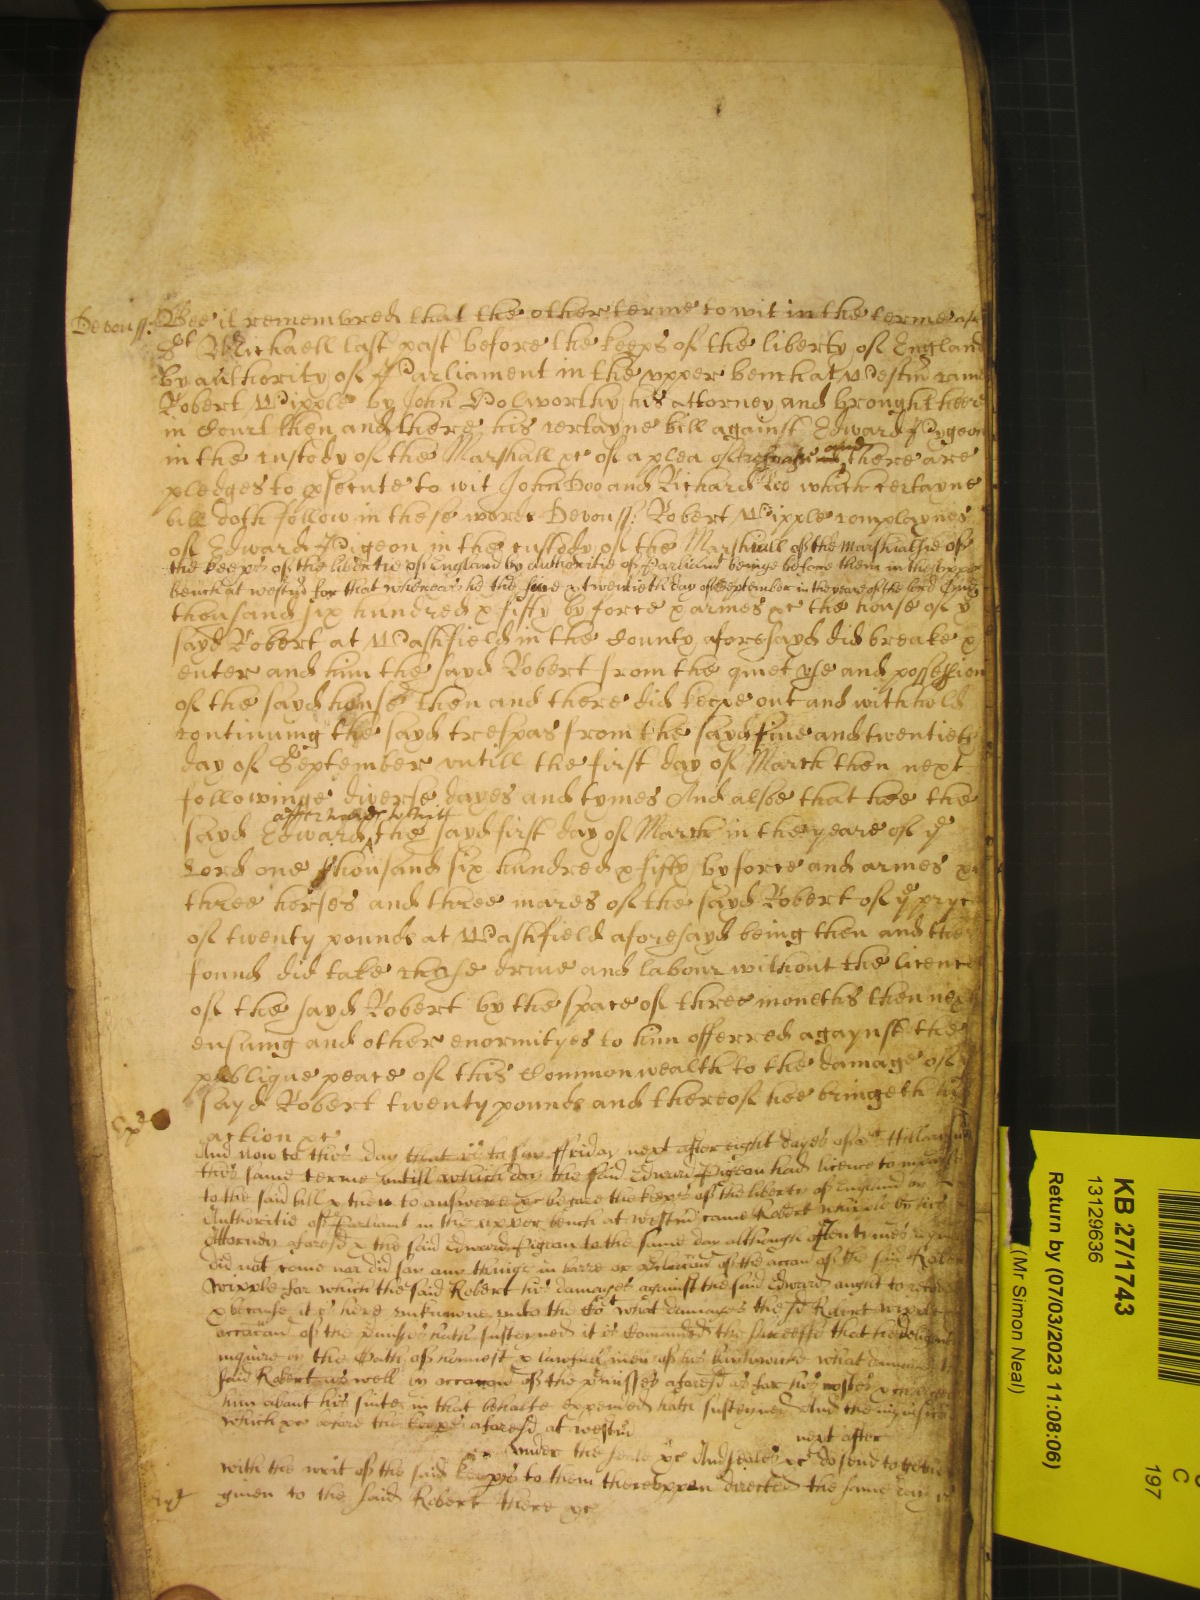 Devon ss. Bee it remembred that the other terme to wit in the terme of
St Michaell last past before the keeps of the liberty of England
by authority of Parliament in the upper bench at Westm came
Robert Wipple by John Holworthy his attorney and brought here
in Court then and there his certayne bill against Edward Pygeon
in the custody of the Marshall &c of a plea of trespass and there are
pledges to psecute to wit John Doo and Richard Roo which certayne
bill doth follow in these words Devon ss. Robert Wipple complaynes
of Edward Pigeon in the custody of the Marshall of the Marshalsie of
the keeps of the libertie of England by authoritie of Parliamt beinge before them in the upper
bench at westm for that whereas he the five & twentieth day of September in the yeare of the lord One
thousand six hundred & fifty by force & armes &c the house of ye
sayd Robert at Washfield in the County aforesayd did breake &
enter and him the sayd Robert from the quiet use and possession
of the sayd house then and there did keepe out and withhold
continuing the sayd trespas from the sayd five and twentieth
day of September untill the first day of March then next
followinge diverse dayes and tymes And alsoe that hee the
sayd Edward afterwards to witt the sayd first day of March in the yeare of ye
Lord one thousand six hundred & fifty by force and armes &c
three horses and three mares of the sayd Robert of ye pryce
of twenty pounds at Washfield aforesayd being then and there
found did take chase drive and labour without the licence
of the sayd Robert by the space of three moneths then next
ensuing and other enormityes to him offerred agaynst the
publique peace of this Commonwealth to the damage of ye
sayd Robert twenty pounds and thereof hee bringeth his
action &c
And now to this day that is to say Friday next after eight dayes of St Hillary
this same terme untill which day the said Edward Pigeon had licence to imparle
to the said bill & then to answere &c before the keeps of the liberty of England by
Authoritie of Parliamt in the upper bench at westm came Robert Whipple by his
Attorney aforesd & the said Edward Pigeon to the same day although oftentimes
did not come nor did say any thinge in barre or of the accon of the said Robert
Wipple for which the said Robert his damages against the said Edward ought to recover
& because it is here unknowne unto the Cot what damages the sd Robert Wipple
occacion of the pmisses hath susteyned it is Comanded the Sheriffe that he diligent
inquire by the Oath of honnest & lawfull men of his what damages the
said Robert as well by occacon of the pmisses aforesd as for his costes & charges
him about his suite in that behalfe expended hath susteyned And the inquisicon
which &c before the keeps aforesd at westm next after
under the seale &c And seales &c do send together
with the writ of the said keepers to them thereuppon directed the same day is
given to the said Robert there &c
KB 27/1743
13129636
Return by (07/03/2023 11:08:06)
(Mr Simon Neal)
C
197